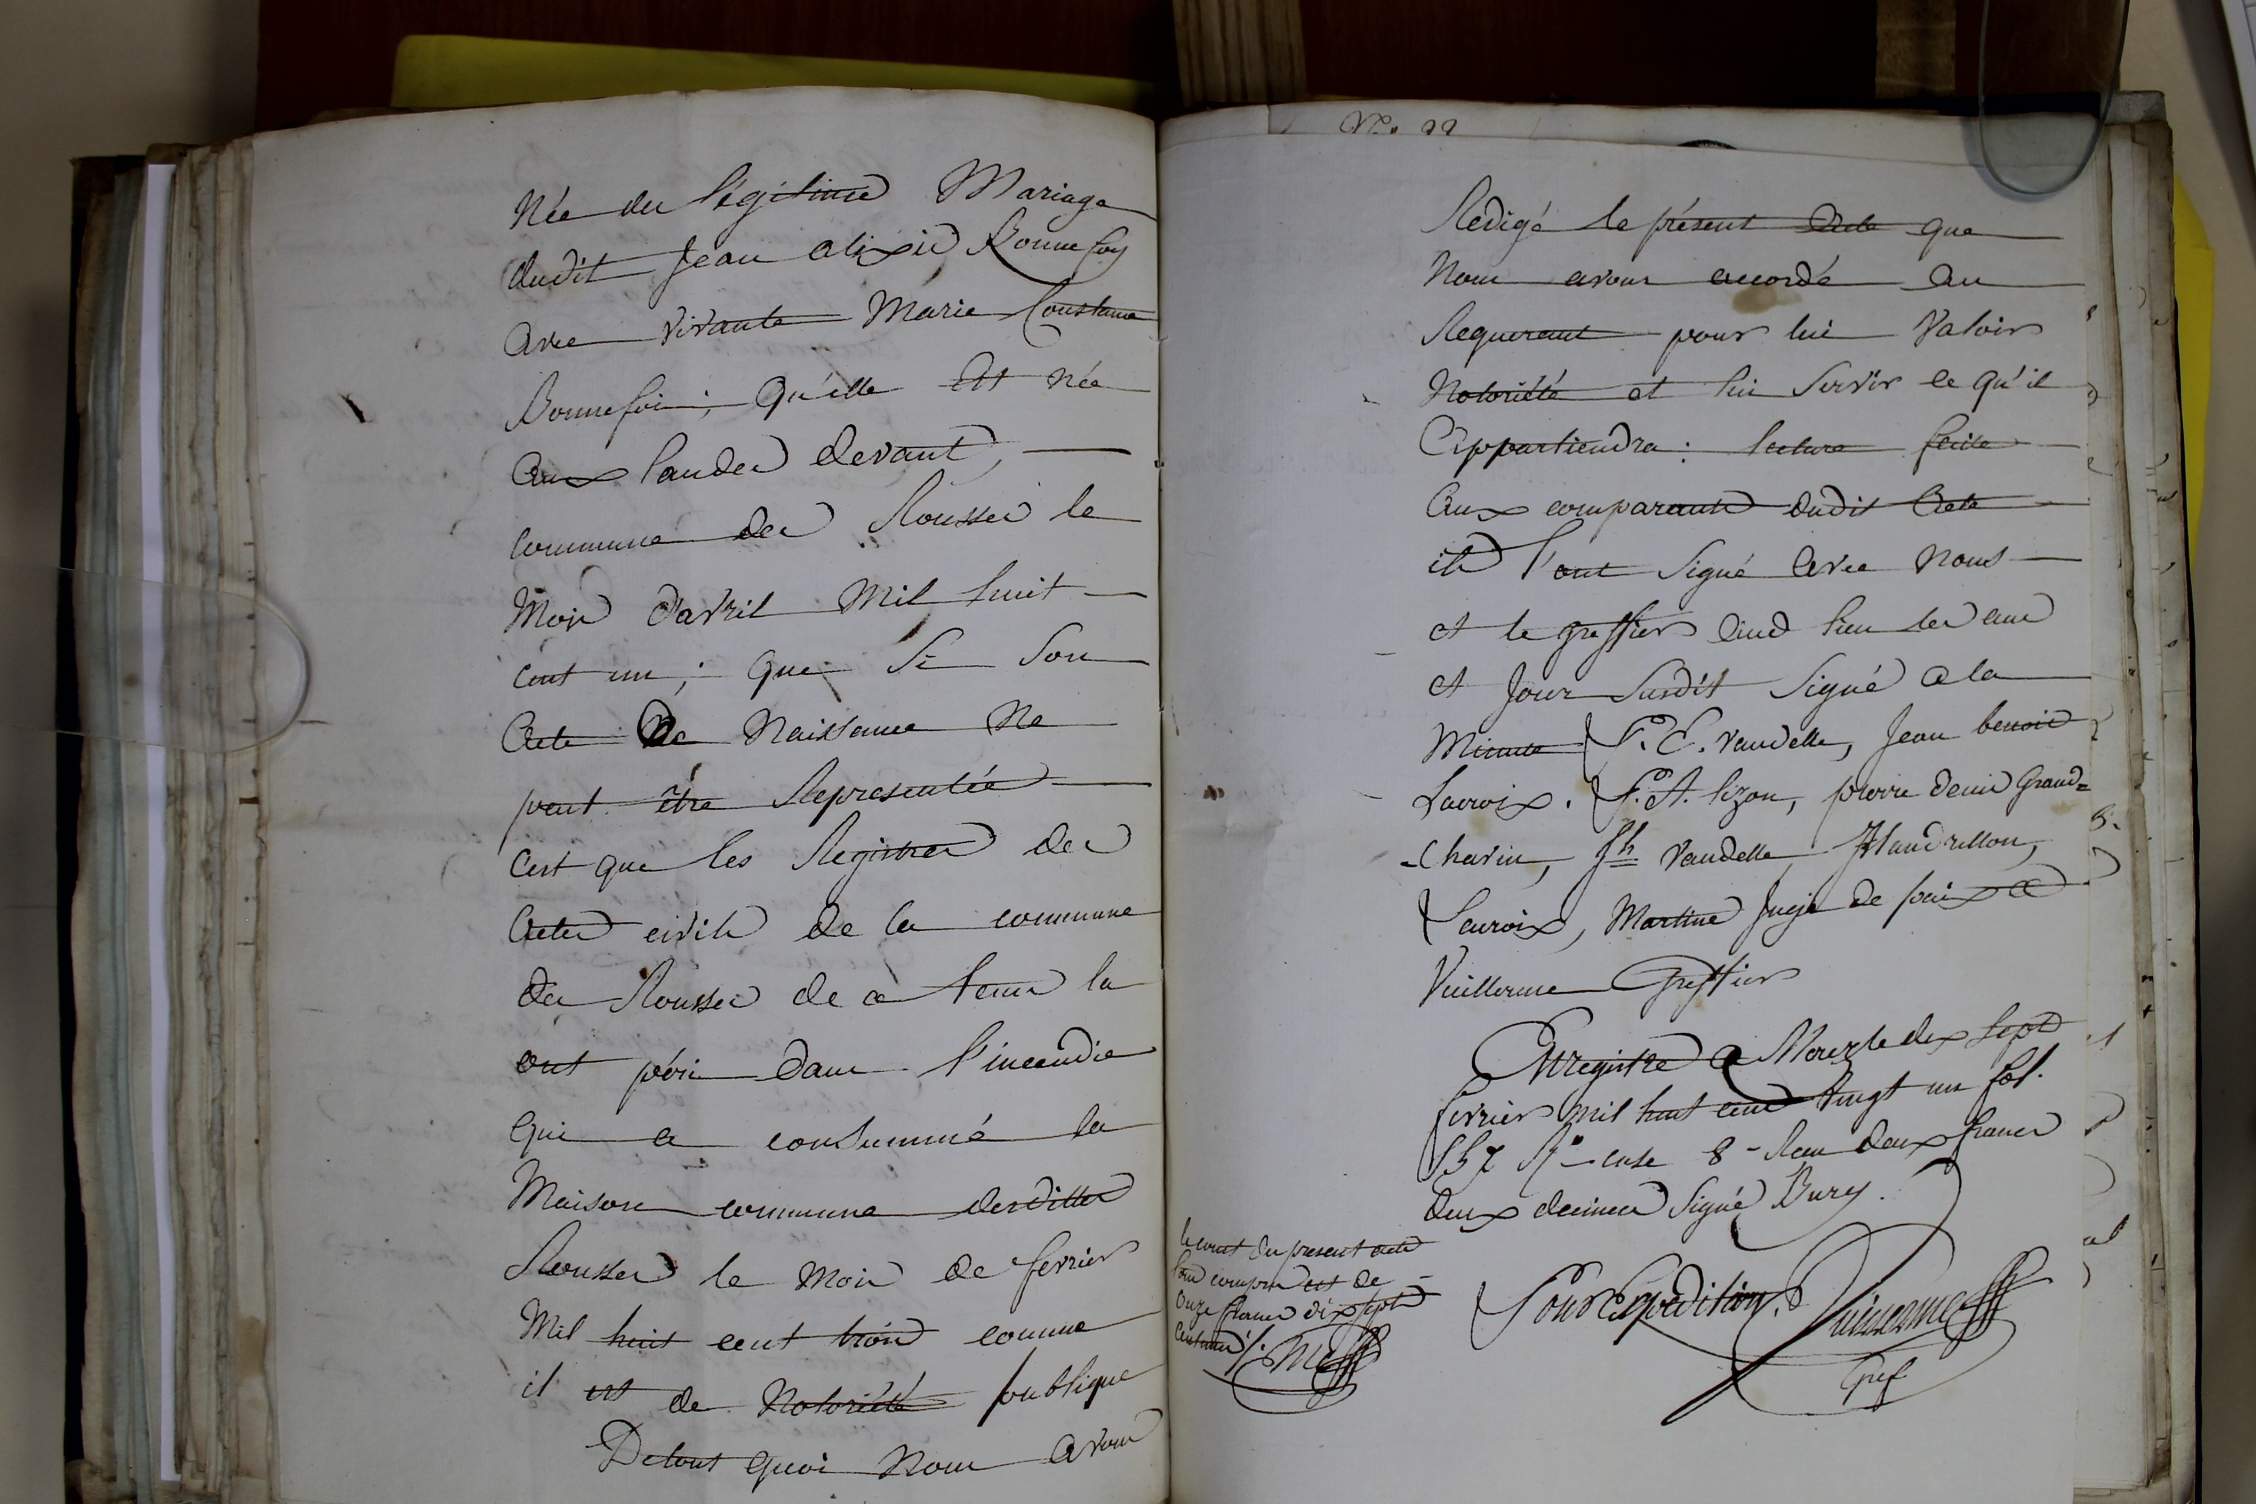 Née du légitime Mariage
dudit Jean alixis Bonnefoy
avec vivante Marie Constance
Bonnefoi; qu'elle est née
aux landes devant,
commune des Rousses le
Mois d'avril Mil huit
cent un; que si son
acte de Naissance Ne
peut être Representée
c'est que les Registres des
actes civils de la commune
des Rousses de ce tems la
ont péri dans l'incendie
qui a consummé la
Maison commune desdittes
Rousses le Mois de fevrier
Mil huit cent trois comme
il est de Notoriété publique
De tout quoi Nous avons
N.o 22
Redigé le présent Acte que
Nous avons accordé au
Requerant pour lui Valoir
Notoriété et lui servir ce qu'il
Appartiendra: lecture faite
aux comparants dudit Acte
ils l'ont signé avec Nous
et le greffier aux lieu les an
et Jour susdit signé a la
Minute F. E. Vandelle, Jean benoit
Lacroix. F. A. lizon, pierre denis Grand=
-Chavin, Jh Vandelle, Mandrillon,
Lacroix, Martine Juge de paix &
Vuillerme Greffier
Enregistré a Morez le dix sept
fevrier mil huit cent vingt un fol.
157 Ro case 8 - Reçu deux francs
deux decimes Signé Bury.
le cout du present acte
tout compris est de
onze francs dix sept
centimes /.
Pour Expedition. Vuillerme
Gref